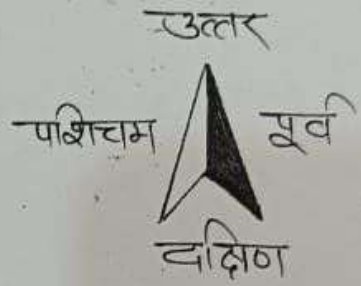 उत्तर
पश्चिम पूर्व
दक्षिण